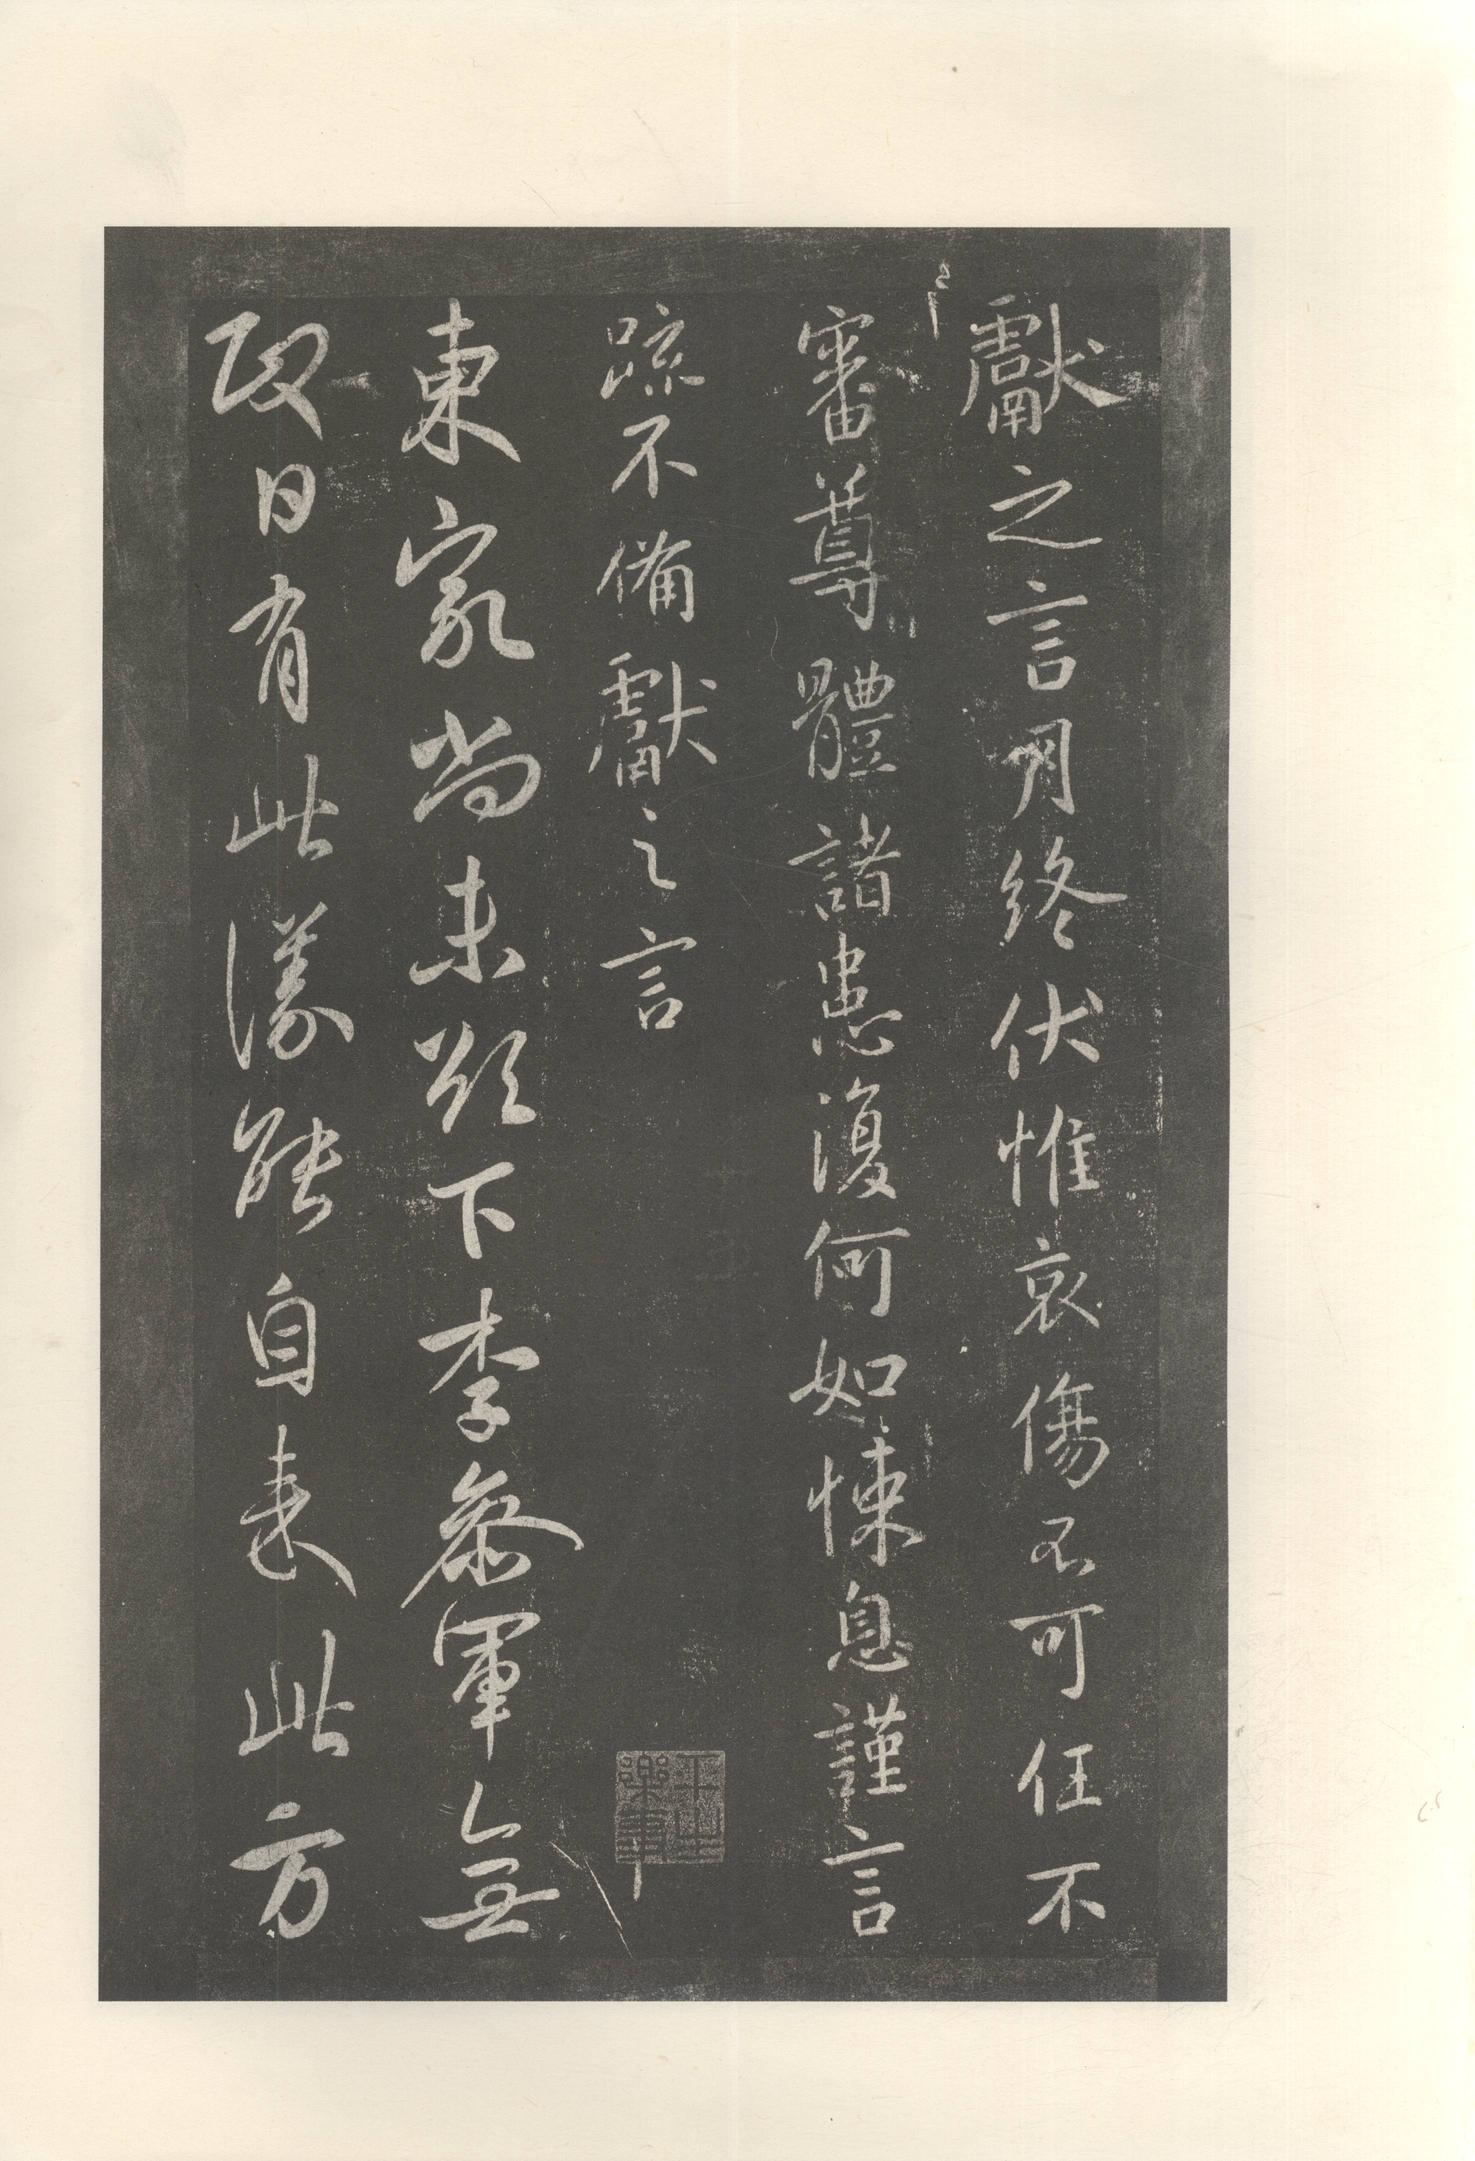 獻之言月終伏惟哀傷不可任不
審尊體諸患復何如悚息謹言
疏不備獻之言
東家尚未欲下李參軍無
取日有此議能自表此方
平生
樂事